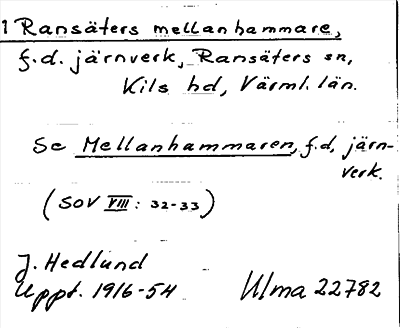 1 Ransäters mellanhammare,
f.d. järnverk, Ransäters sn,
Kils hd, Värml. län.
Se Mellanhammaren, f.d. järn-
verk.
(SOV VIII: 32-33)
J. Hedlund
Uppt. 1916-54 Ulma 22782